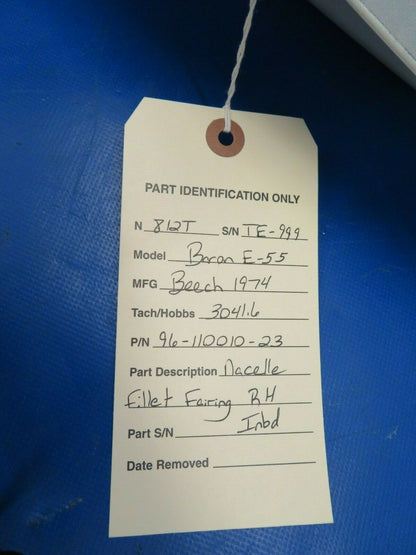 PART IDENTIFICATION ONLY
N 812T S/N TE-999
Model Baron E-55
MFG Beech 1974
Tach/Hobbs 3041.6
P/N 96-110010-23
Part Description Nacelle
Fillet Fairing RH
Inbd
Part S/N
Date Removed